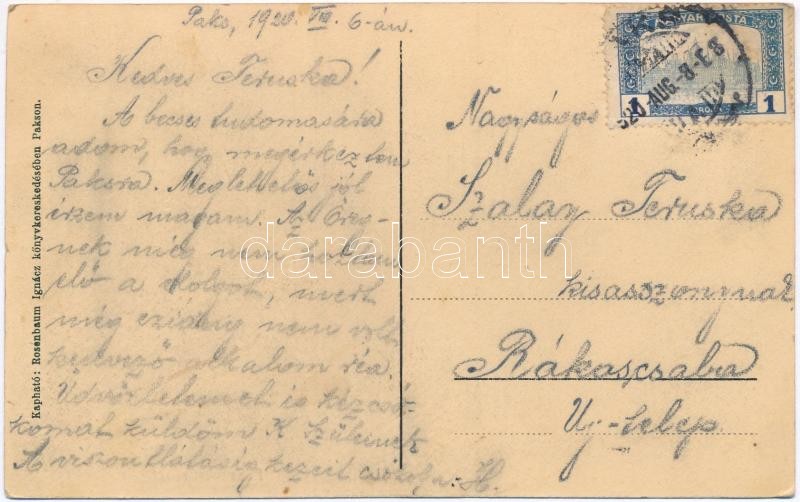 Paks, 1920 VIII. 6-án.
Kedves Teruska!
A becses tudomására
adom, hogy megérkeztem
Paksra. Meglehetős jól
érzem magam. Az Öreg-
nek még nem hoztam
elő a dolgot, mert
még ezideig nem volt
kedvező alkalom réa.
Üdvözletemet is kézcsó-
komat küldöm K Szüleinek
A viszontlátásig kezeit csókolja H.
Kapható: Rosenbaum Ignácz könyvkereskedésében Pakson.
1 1
920 AUG. -8.-E 8
Nagyságos
Szalay Teruska
kisasszonynak
Rákoscsaba
Uj-telep
darabanth